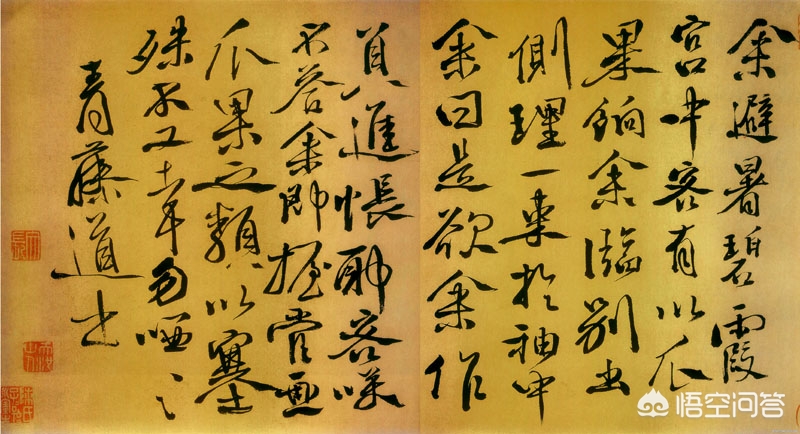 余避暑碧霞
宮中客有以瓜
果餉余臨別出
側理一束於袖中
余曰是欲余作
進帳耶客咲
不答余即握管画
瓜果之類以塞
殊不工幸勿哂之
青藤道士
悟空问答